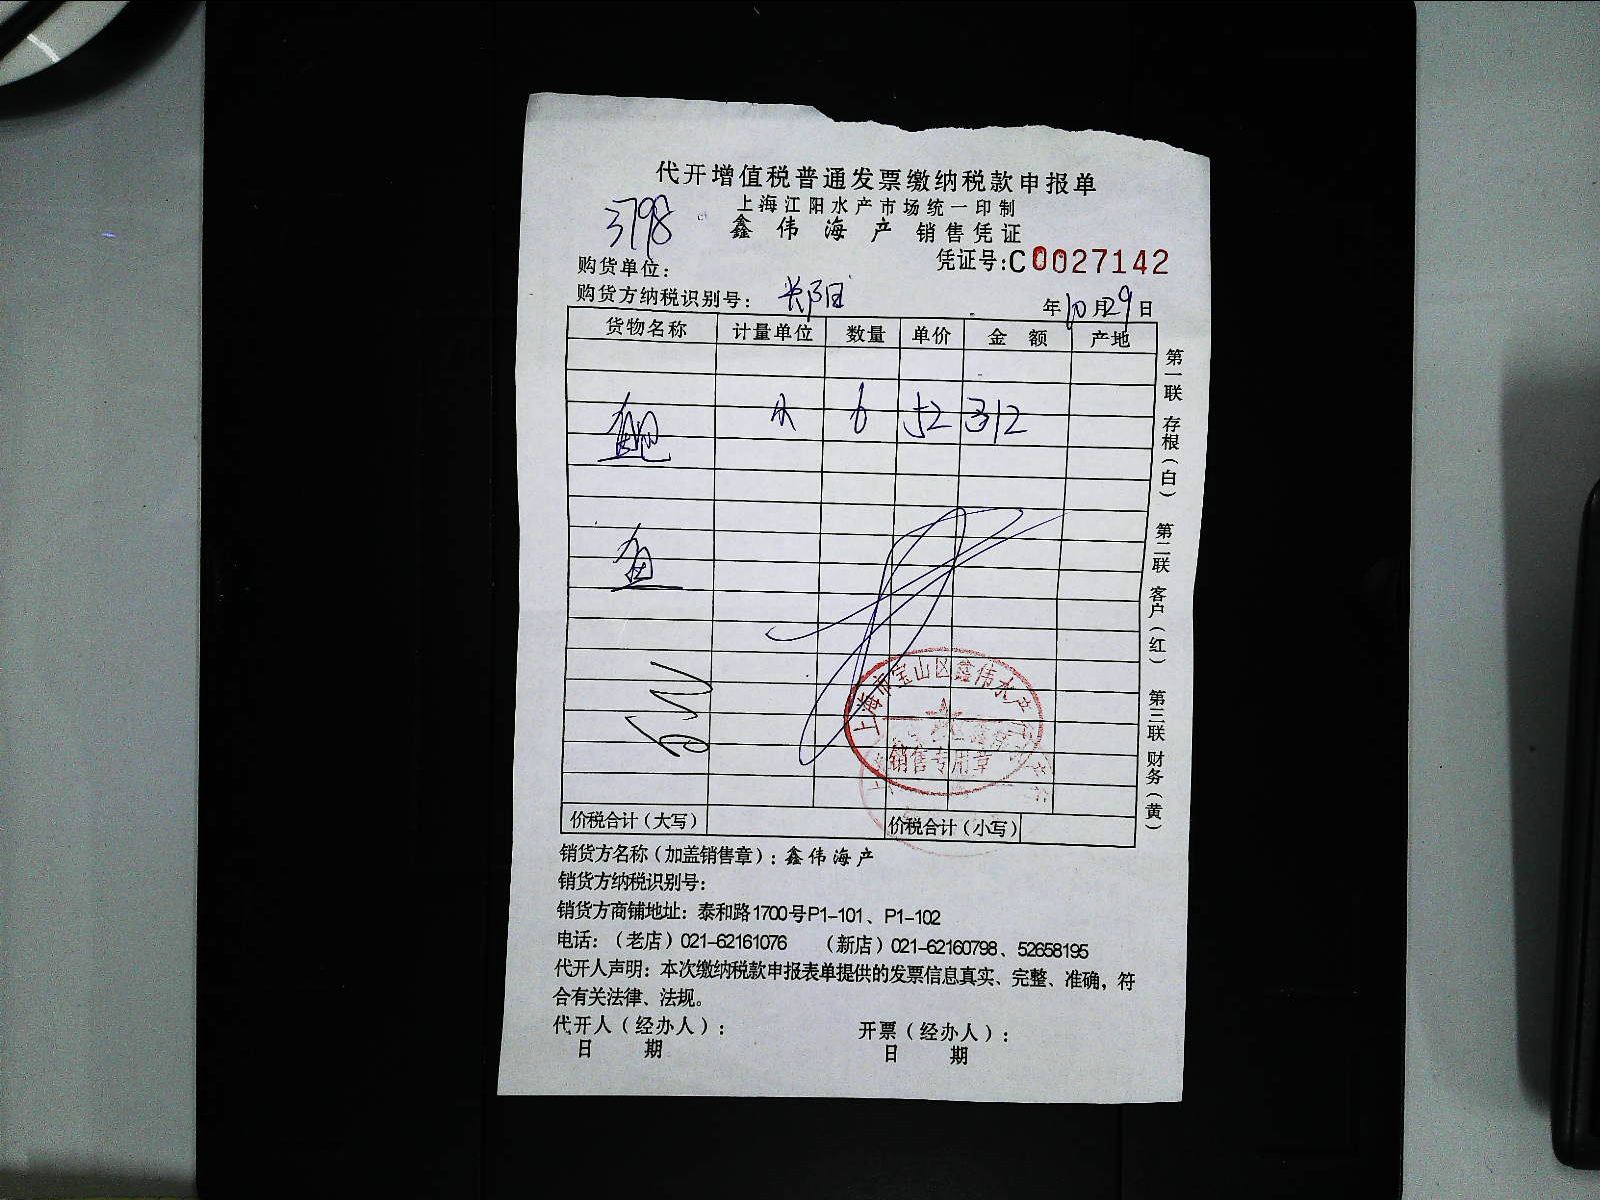 代开增值税普通发票缴纳税款申报单
上海江阳水产市场统一印制
3798
鑫伟海产 销售凭证
凭证号:C0027142
购货单位:
购货方纳税识别号: 长阳
年10月29日
货物名称 计量单位 数量 单价 金额 产地
鲍 6 52 312
鱼
价税合计(大写) 价税合计(小写)
上海市宝山区鑫伟水产行
销售专用章
第一联 存根(白) 第二联 客户(红) 第三联 财务(黄)
销货方名称(加盖销售章):鑫伟海产
销货方纳税识别号:
销货方商铺地址:泰和路1700号P1-101、P1-102
电话:(老店)021-62161076 (新店)021-62160798、52658195
代开人声明:本次缴纳税款申报表单提供的发票信息真实、完整、准确,符
合有关法律、法规。
代开人(经办人): 开票(经办人):
日 期 日 期